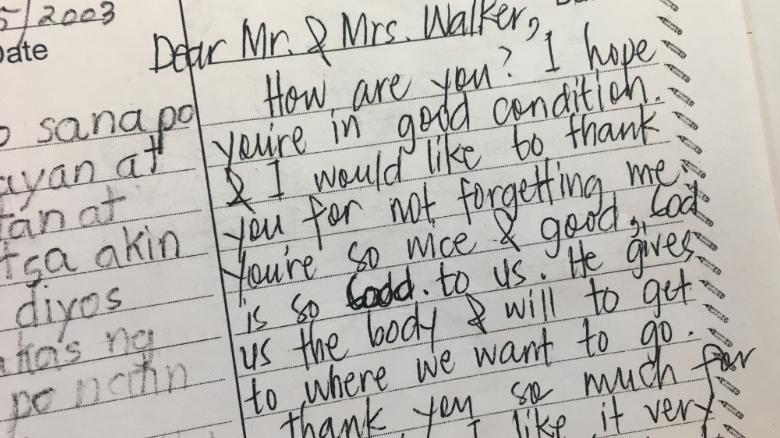 5/2003
Date
sana po
ayan at
an at
sa akin
diyos
kas ng
po natin
Dear Mr. & Mrs. Walker,
How are you? I hope
you're in good condition.
& I would like to thank
you for not forgetting me.
You're so nice & good, God
is so Good. to us. He gives
us the body & will to get
to where we want to go.
thank you so much for
I like it very